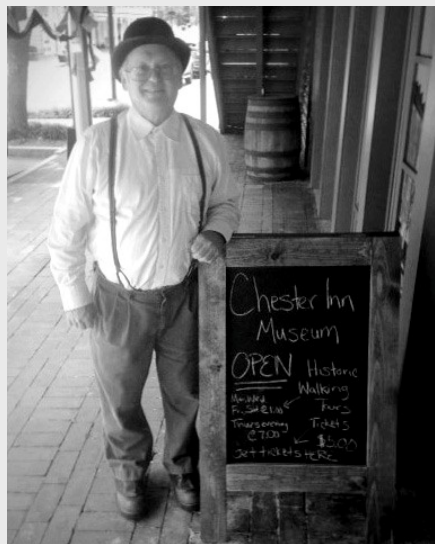 Chester Inn
Museum
OPEN Historic
Walking
Mon. Wed
Fri. Sat @ 1:00
Tours
Thurs evening
@ 7:00
Tickets
$5.00
Get tickets HERE